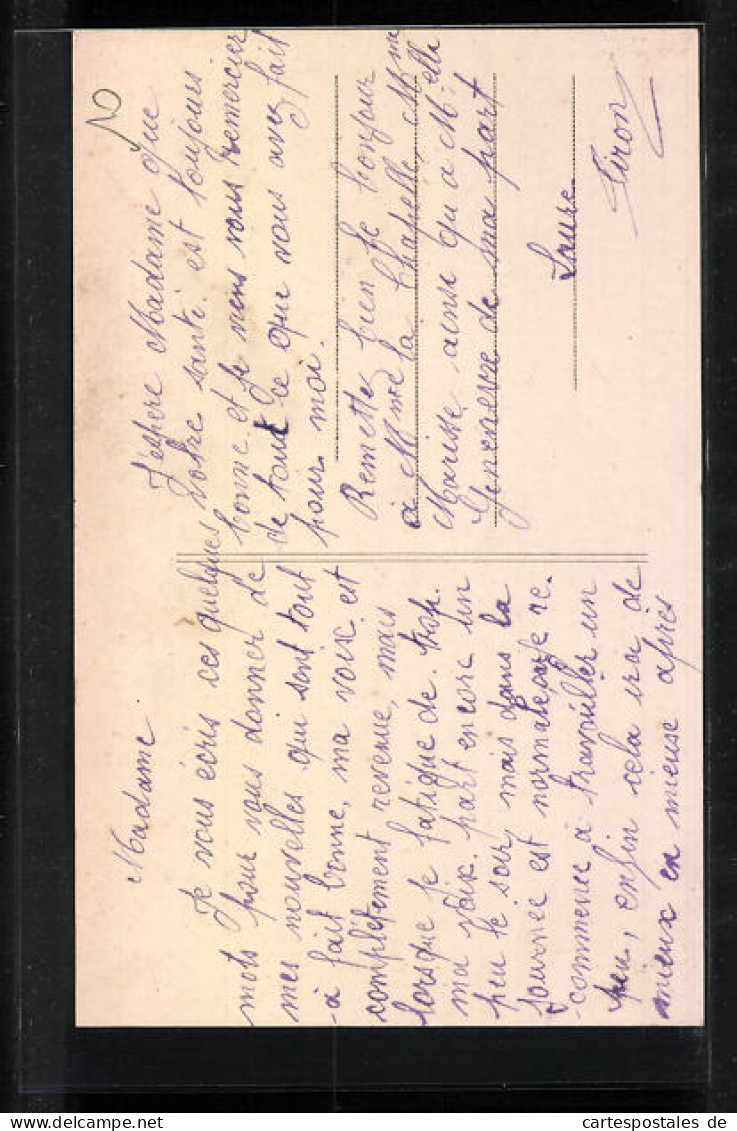 Madame
Je vous écris ces quelques
mots pour vous donner de
mes nouvelles qui sont tout
à fait bonne, ma voix est
complètement revenue, mais
lorsque je fatigue de trop.
ma voix part encore un
peu le soir, mais dans la
journée est normale, je re.
commence à travailler un
peu, enfin cela ira de
mieux en mieuse après
J'espère Madame que
votre santé est toujours
bonne et je viens vous remercier
de tout ce que vous avez fait
pour moi.
Remettez bien le bonjour
à Mme la Chapelle, Mme
Marisse ainsi qu'a Melle
Geneviève de ma part
Laure
Tiron
cartespostales de